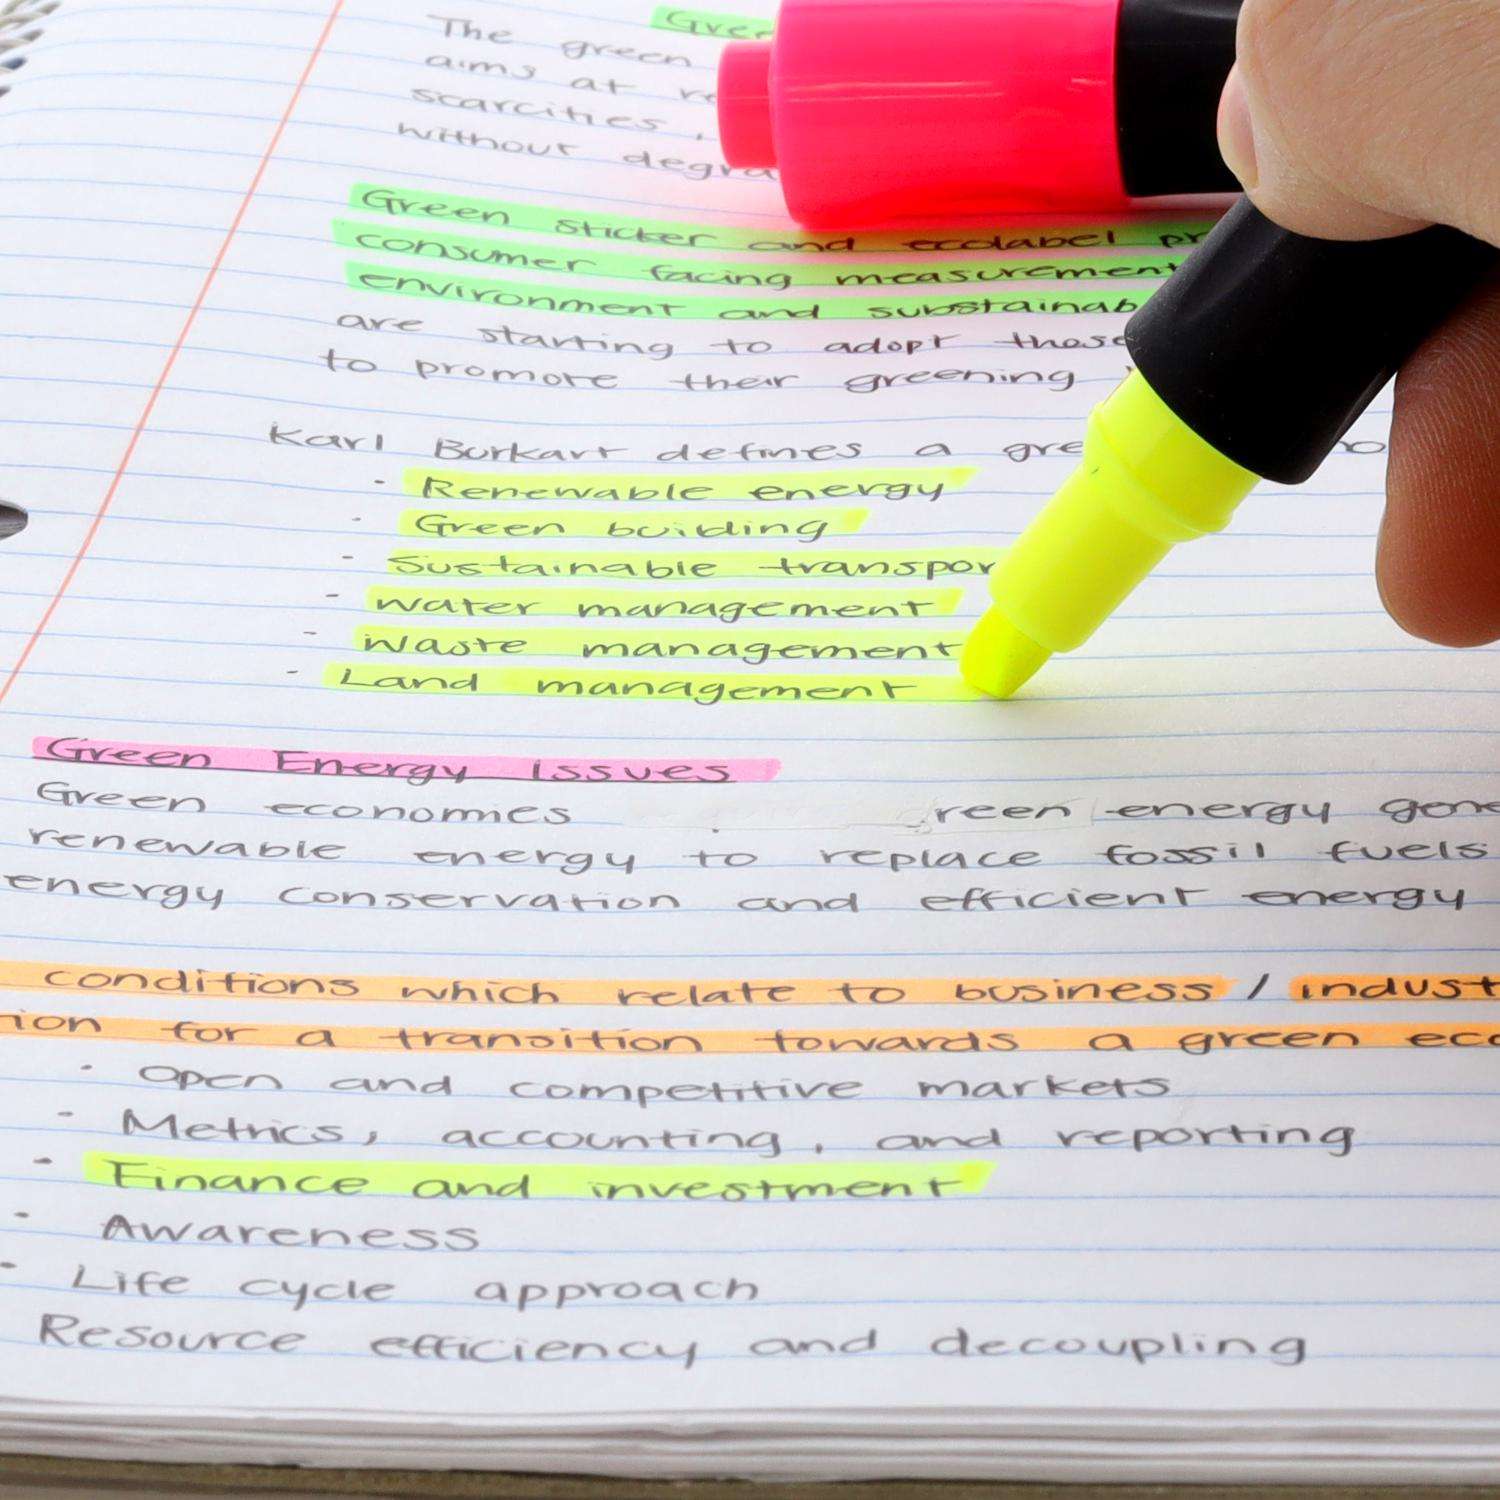 The green
aims at
scarcities,
without
Green sticker and ecolabel
consumer facing
environment and
are starting to adopt
to promote their greening
Karl Burkart defines a
- Renewable energy
- Green building
- Sustainable
- Water management
- Waste management
- Land management
Green Energy Issues
Green economies energy
renewable energy to replace fossil fuels
energy conservation and efficient energy
conditions which relate to business /
for a transition towards a green
- Open and competitive markets
- Metrics, accounting, and reporting
- Finance and investment
- Awareness
- Life cycle approach
Resource efficiency and decoupling